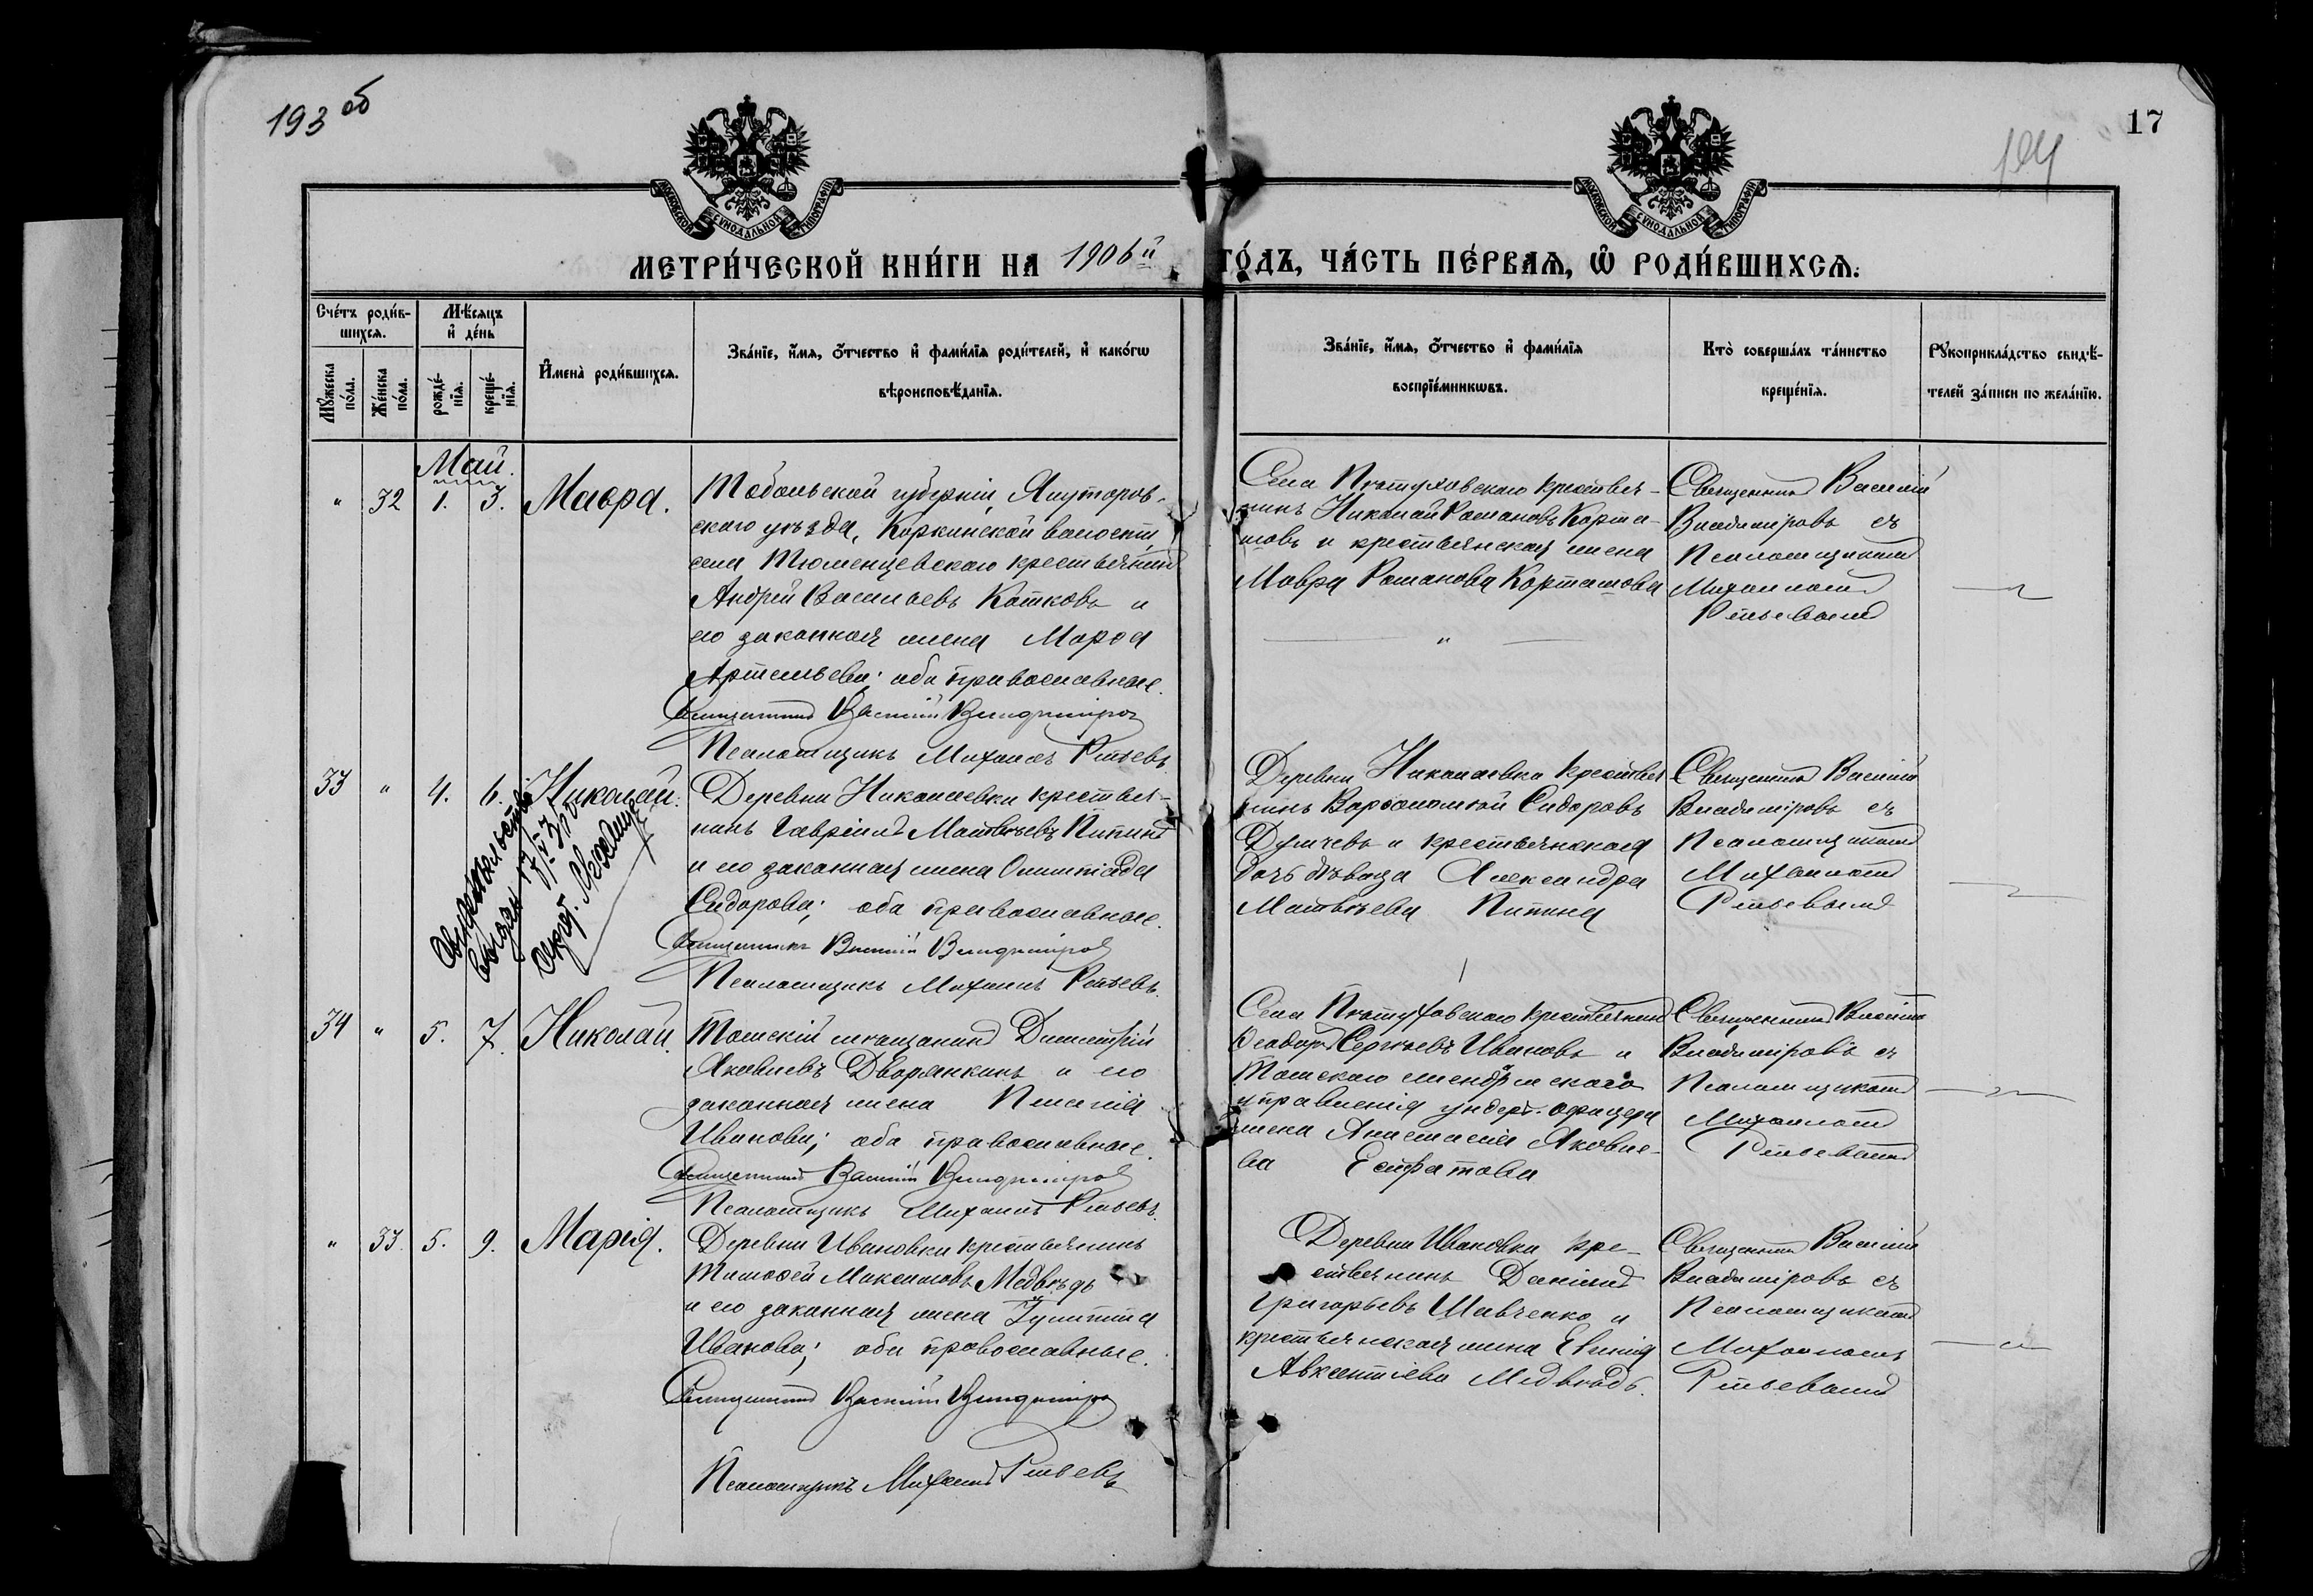 193 об
17
194
МОСКОВСКОЙ СУНОДАЛЬНОЙ ТИПОГРАФІИ
МОСКОВСКОЙ СУНОДАЛЬНОЙ ТИПОГРАФІИ
МЕТРИ́ЧЕСКОЙ КНИ́ГИ НА 1906й
ГО́ДЪ, ЧА́СТЬ ПЕ́РВАѦ, Ѽ РОДИ́ВШИХСѦ.
Сче́тъ роди́в-
шихсѧ.
Мꙋ́жеска по́ла.
Же́нска по́ла.
Мѣ́сѧцъ
и҆ де́нь
рожде́-
нїѧ.
креще́-
нїѧ.
И҆мена̀ роди́вшихсѧ.
Зва́нїе, и҆́мѧ, ѻ҆́тчество и҆ фами́лїѧ роди́телей, и҆ како́гѡ
вѣроисповѣ́данїѧ.
Зва́нїе, и҆́мѧ, ѻ҆́тчество и҆ фами́лїѧ
воспрїе́мникѡвъ.
Кто̀ соверша́лъ та́инство
креще́нїѧ.
Рꙋкоприкла́дство свидѣ́-
телей за́писи по жела́нїю.
Май.
" 32 1. 3. Мавра.
Тобольской губерніи, Ялуторов-
скаго уѣзда, Коркинской волости,
села Тюменцевскаго крестьянинъ
Андрей Васильевъ Катковъ и
его законная жена Марфа
Артемьева; оба православные.
Священникъ Василій Владиміровъ
Псаломщикъ Михаилъ Рѣпьевъ
Села Пѣтуховскаго крестья-
нинъ Николай Романовъ Карта-
шовъ и крестьянская жена
Мавра Романова Карташова
"
Священникъ Василій
Владиміровъ съ
Псаломщикомъ
Михаиломъ
Рѣпьевымъ
33 " 4. 6. Николай.
Свидѣтельство
выдан
Деревни Николаевки крестья-
нинъ Гавріилъ Матвѣевъ Пипинъ
и его законная жена Олимпіада
Сидорова; оба православные.
Священникъ Василій Владиміровъ
Псаломщикъ Михаилъ Рѣпьевъ.
Деревни Николаевки крестья
нинъ Варѳоломей Сидоровъ
и крестьянская
дочь дѣвица Александра
Матвѣева Пипина
Священникъ Василій
Владиміровъ съ
Псаломщикомъ
Михаиломъ
Рѣпьевымъ
34 " 5. 7. Николай.
Томскій мѣщанинъ Димитрій
Яковлевъ Дворянкинъ и его
законная жена Пелагія
Иванова; оба православные.
Священникъ Василій Владиміровъ
Псаломщикъ Михаилъ Рѣпьевъ.
Села Пѣтуховскаго крестьянинъ
Ѳеодоръ Сергѣевъ Ивановъ и
Томскаго жандрмскаго
управленія ундеръ-офицера
жена Анастасія Яковле-
ва
Священникъ Василій
Владиміровъ съ
Псаломщикомъ
Михаиломъ
Рѣпьевымъ
" 33. 5. 9. Марія.
Деревни Ивановки крестьянинъ
Тимоѳей Максимовъ Медвѣдь
и его законная жена Іулитта
Иванова; оба православные.
Священникъ Василій Владиміровъ
Псаломщикъ Михаилъ Рѣпьевъ
Деревни Ивановки кре-
стьянинъ Даніилъ
Григорьевъ Шевченко и
крестьянская жена
Авксентіева Медвѣдь.
Священникъ Василій
Владиміровъ съ
Псаломщикомъ
Михаиломъ
Рѣпьевымъ